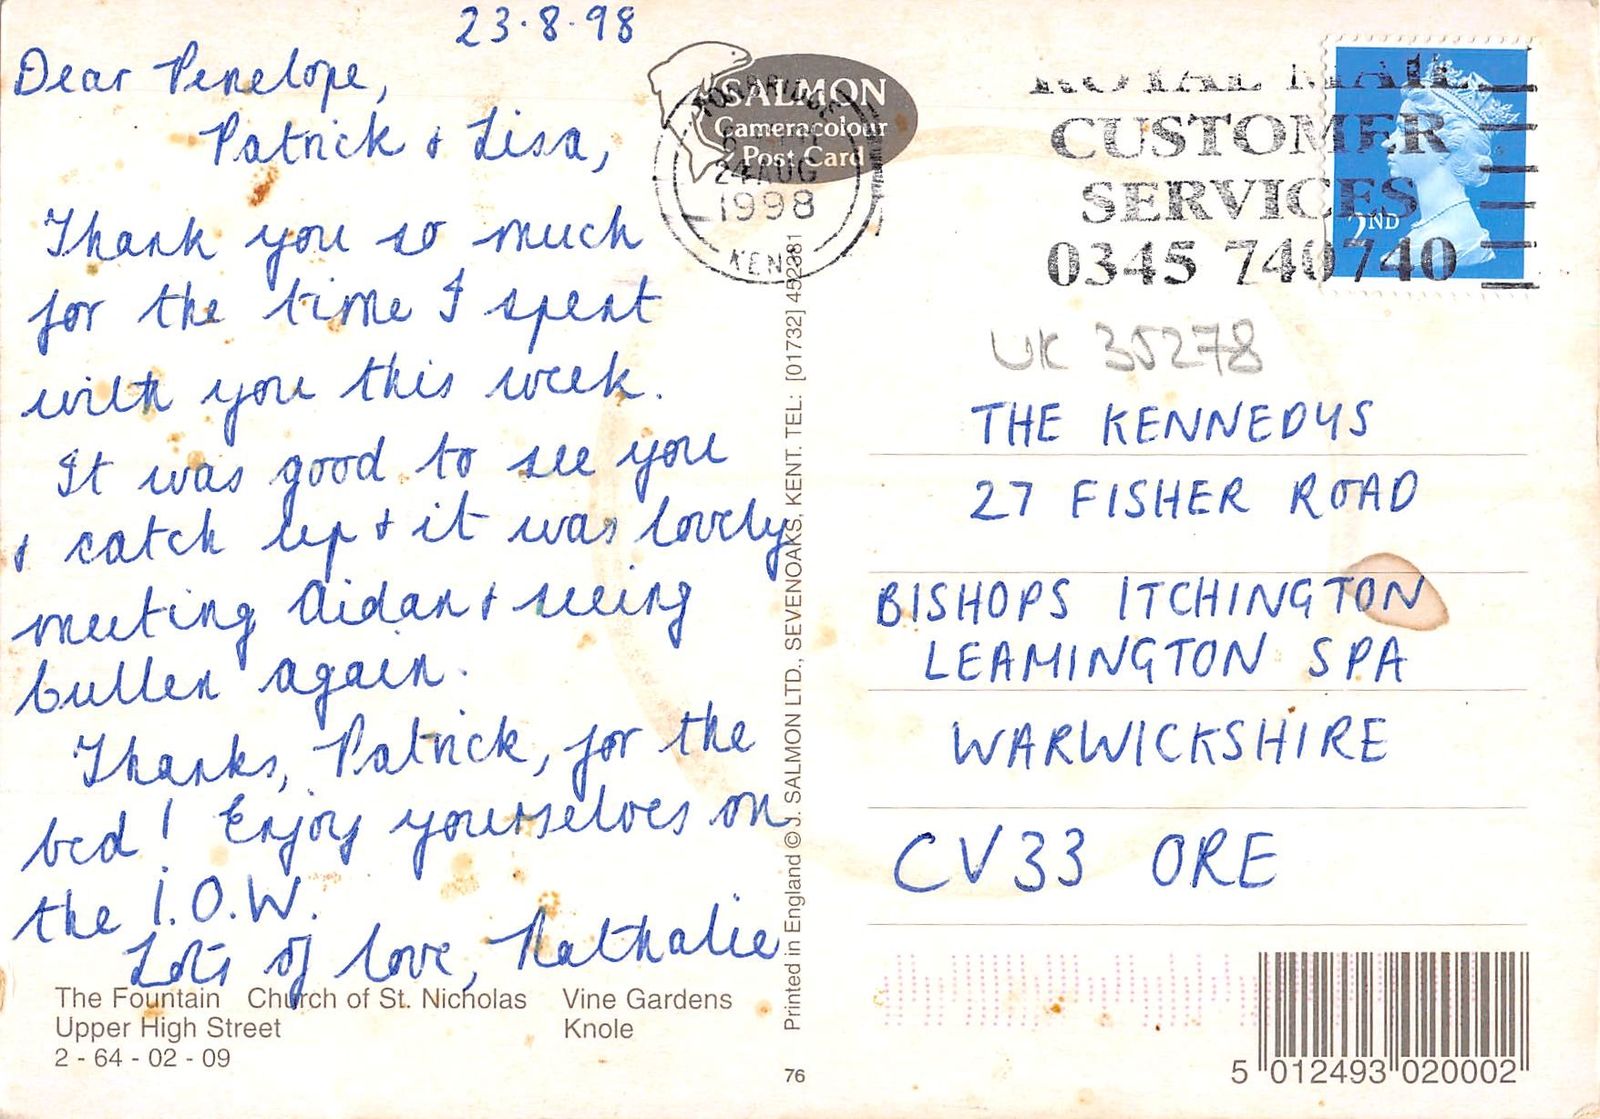 23.8.98
Dear Penelope,
Patrick & Lisa,
Thank you so much
for the time I spent
with you this week.
It was good to see you
& catch up & it was lovely
meeting Aidan & seeing
Cullen again.
Thanks, Patrick, for the
bed! Enjoy yourselves on
the I.O.W.
Lots of love, Nathalie
The Fountain Church of St. Nicholas Vine Gardens
Upper High Street Knole
2 - 64 - 02 - 09
SALMON
Cameracolour
Post Card
24 AUG
1998
KENT
Printed in England © J. SALMON LTD., SEVENOAKS, KENT. TEL: [01732] 452381
76
ROYAL MAIL
CUSTOMER
SERVICES
0345 740740
2ND
UK 35278
THE KENNEDYS
27 FISHER ROAD
BISHOPS ITCHINGTON
LEAMINGTON SPA
WARWICKSHIRE
CV33 ORE
5 012493 020002